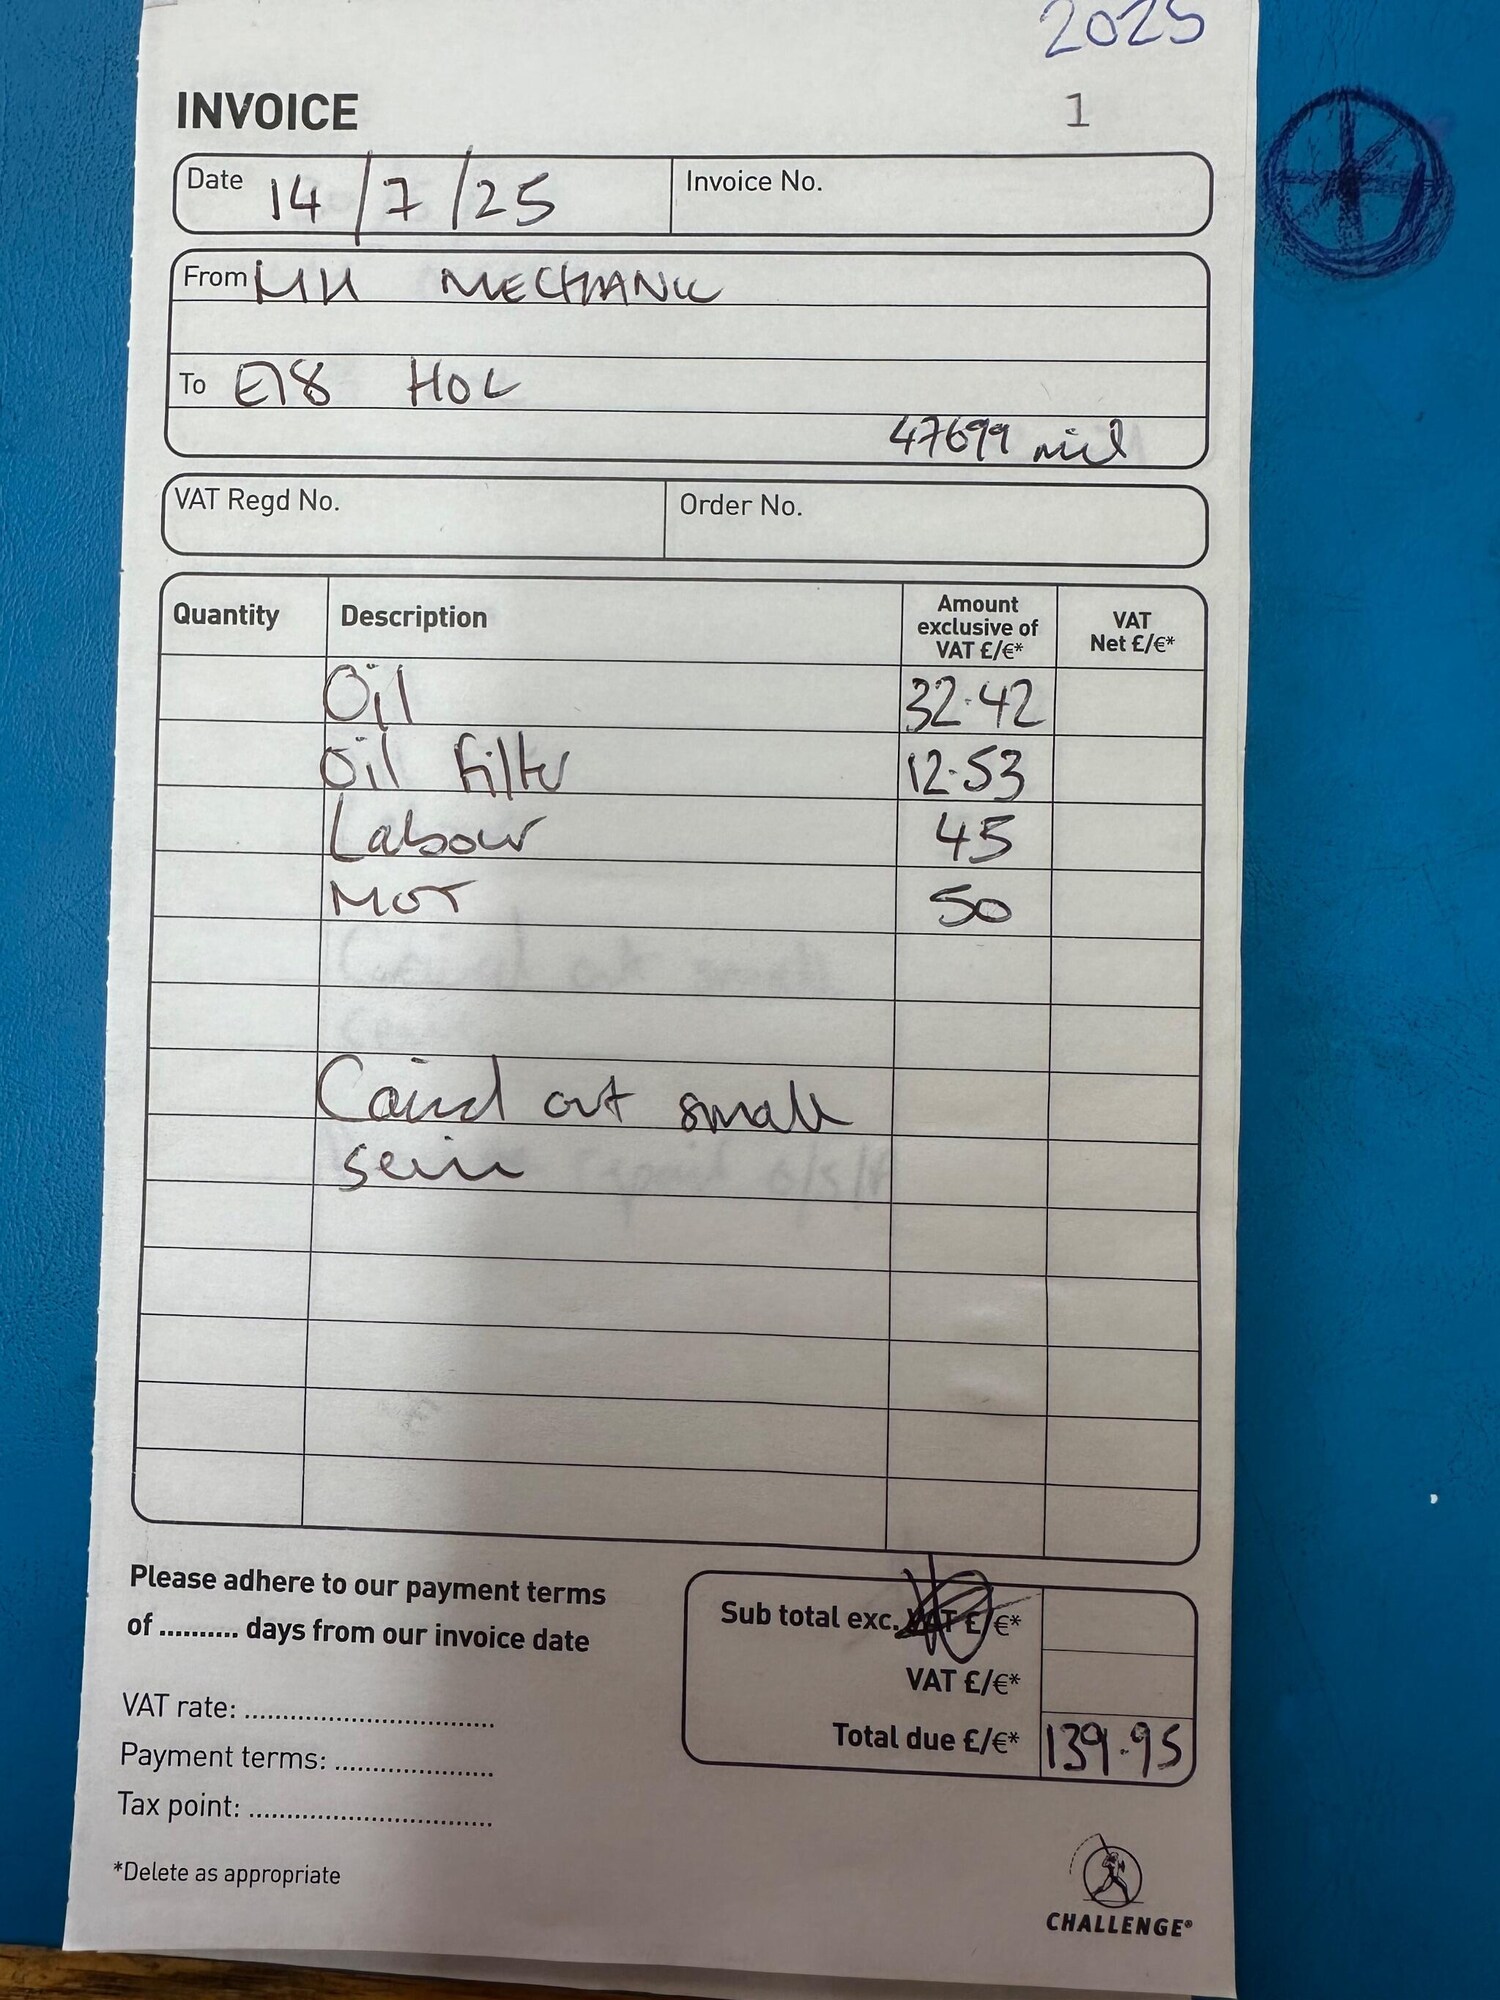 2025
INVOICE
1
Date 14/7/25
Invoice No.
From MH MECHANIC
To E78 HOL
47699 mil
VAT Regd No.
Order No.
Quantity Description Amount exclusive of VAT £/€* VAT Net £/€*
Oil 32.42
Oil Filter 12.53
Labour 45
MOT 50
Carried out small
service
Please adhere to our payment terms
of .......... days from our invoice date
Sub total exc. VAT £/€*
VAT £/€*
Total due £/€* 139.95
VAT rate: ....................................
Payment terms: .......................
Tax point: ...................................
*Delete as appropriate
CHALLENGE®